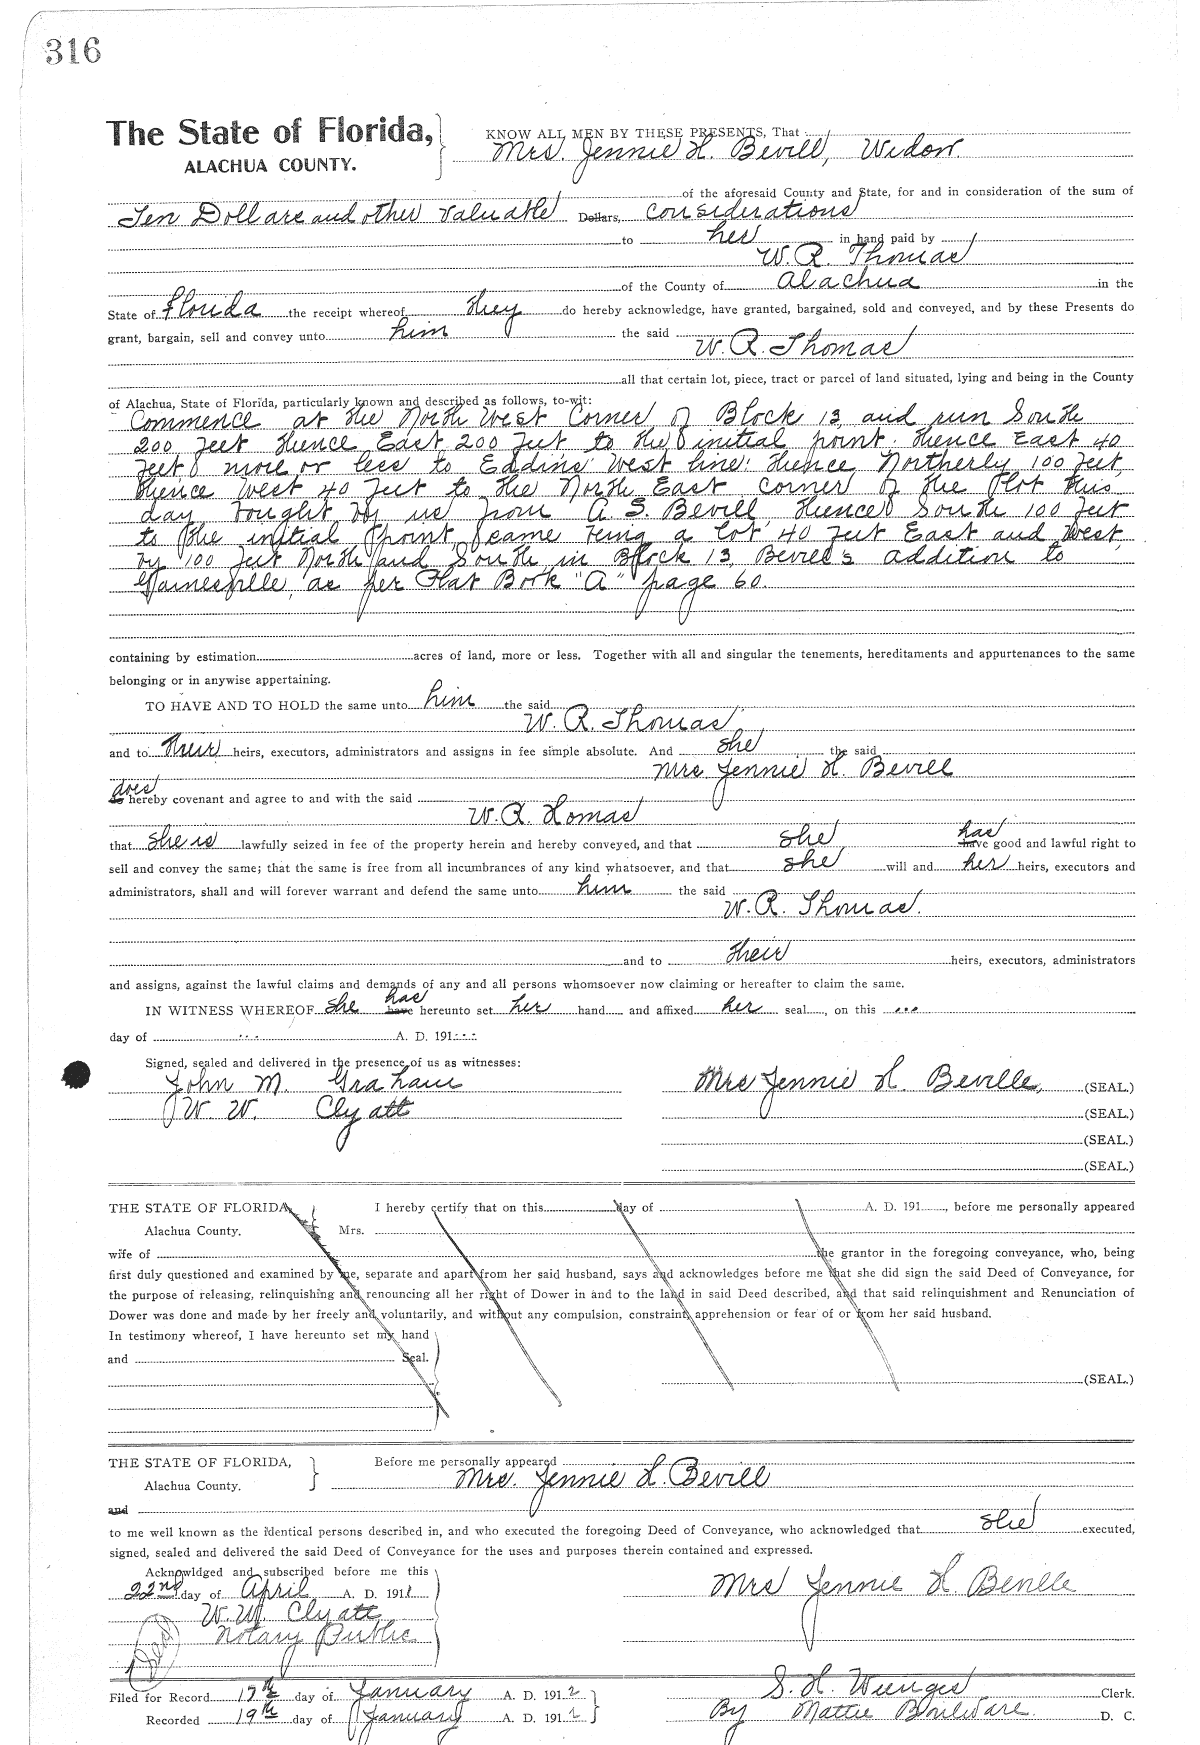 316
The State of Florida, KNOW ALL MEN BY THESE PRESENTS, That
ALACHUA COUNTY. Mrs. Jennie H. Bevill, Widow
of the aforesaid County and State, for and in consideration of the sum of
Ten Dollars and other valuable Dollars, considerations
to her in hand paid by
W. R. Thomas
of the County of Alachua in the
State of Florida the receipt whereof they do hereby acknowledge, have granted, bargained, sold and conveyed, and by these Presents do
grant, bargain, sell and convey unto him the said
W. R. Thomas
all that certain lot, piece, tract or parcel of land situated, lying and being in the County
of Alachua, State of Florida, particularly known and described as follows, to-wit:
Commence at the North West Corner of Block 13 and run South
200 feet thence East 200 feet to the initial point. thence East 40
feet more or less to Eddins West line: thence Northerly 100 feet
thence West 40 feet to the North East corner of the Plot this
day bought by us from A. S. Bevill thence South 100 feet
to the initial point same being a lot 40 feet East and West
by 100 feet North and South in Block 13, Bevill's addition to
Gainesville, as per Plat Book "A" page 60.
containing by estimation acres of land, more or less. Together with all and singular the tenements, hereditaments and appurtenances to the same
belonging or in anywise appertaining.
TO HAVE AND TO HOLD the same unto him the said
W. R. Thomas
and to their heirs, executors, administrators and assigns in fee simple absolute. And she the said
Mrs Jennie H. Bevill
does
do hereby covenant and agree to and with the said
W. R. Homas
that she is lawfully seized in fee of the property herein and hereby conveyed, and that she has have good and lawful right to
sell and convey the same; that the same is free from all incumbrances of any kind whatsoever, and that she will and her heirs, executors and
administrators, shall and will forever warrant and defend the same unto him the said
W. R. Thomas.
and to their heirs, executors, administrators
and assigns, against the lawful claims and demands of any and all persons whomsoever now claiming or hereafter to claim the same.
IN WITNESS WHEREOF she has have hereunto set her hand and affixed her seal, on this ...
day of ... A. D. 191...
Signed, sealed and delivered in the presence of us as witnesses:
John M. Graham Mrs Jennie H. Beville, (SEAL.)
W. W. Clyatt (SEAL.)
(SEAL.)
(SEAL.)
THE STATE OF FLORIDA, I hereby certify that on this day of A. D. 191, before me personally appeared
Alachua County. Mrs.
wife of the grantor in the foregoing conveyance, who, being
first duly questioned and examined by me, separate and apart from her said husband, says and acknowledges before me that she did sign the said Deed of Conveyance, for
the purpose of releasing, relinquishing and renouncing all her right of Dower in and to the land in said Deed described, and that said relinquishment and Renunciation of
Dower was done and made by her freely and voluntarily, and without any compulsion, constraint, apprehension or fear of or from her said husband.
In testimony whereof, I have hereunto set my hand
and Seal.
(SEAL.)
THE STATE OF FLORIDA, Before me personally appeared
Alachua County. Mrs. Jennie H. Bevill
and
to me well known as the identical persons described in, and who executed the foregoing Deed of Conveyance, who acknowledged that she executed,
signed, sealed and delivered the said Deed of Conveyance for the uses and purposes therein contained and expressed.
Acknowldged and subscribed before me this
22nd day of April A. D. 1911 Mrs Jennie H. Beville
W. W. Clyatt
Notary Public
Seal
Filed for Record 17th day of January A. D. 1912 S. H. Wienges Clerk.
Recorded 19th day of January A. D. 1912 By Mattie Boulware D. C.